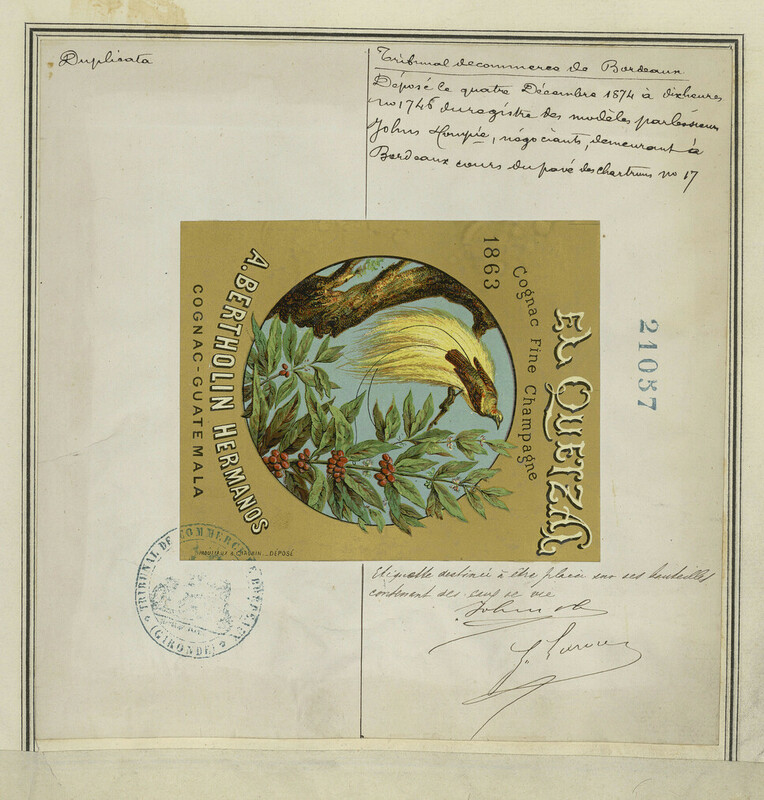 Duplicata
Tribunal de commerce de Bordeaux
Déposé le quatre Décembre 1874 à dix heures
no 1746 du registre des modèles par les sieurs
Johns, négociants, demeurant à
Bordeaux cours du pavé des Chartrons no 17
EL QUETZAL
Cognac Fine Champagne
1863
A. BERTHOLIN HERMANOS
COGNAC-GUATEMALA
DÉPOSÉ
21037
TRIBUNAL DE COMMERCE DE BORDEAUX
(GIRONDE)
Etiquette destinée à être placée sur ses bouteilles
contenant des eaux de vie